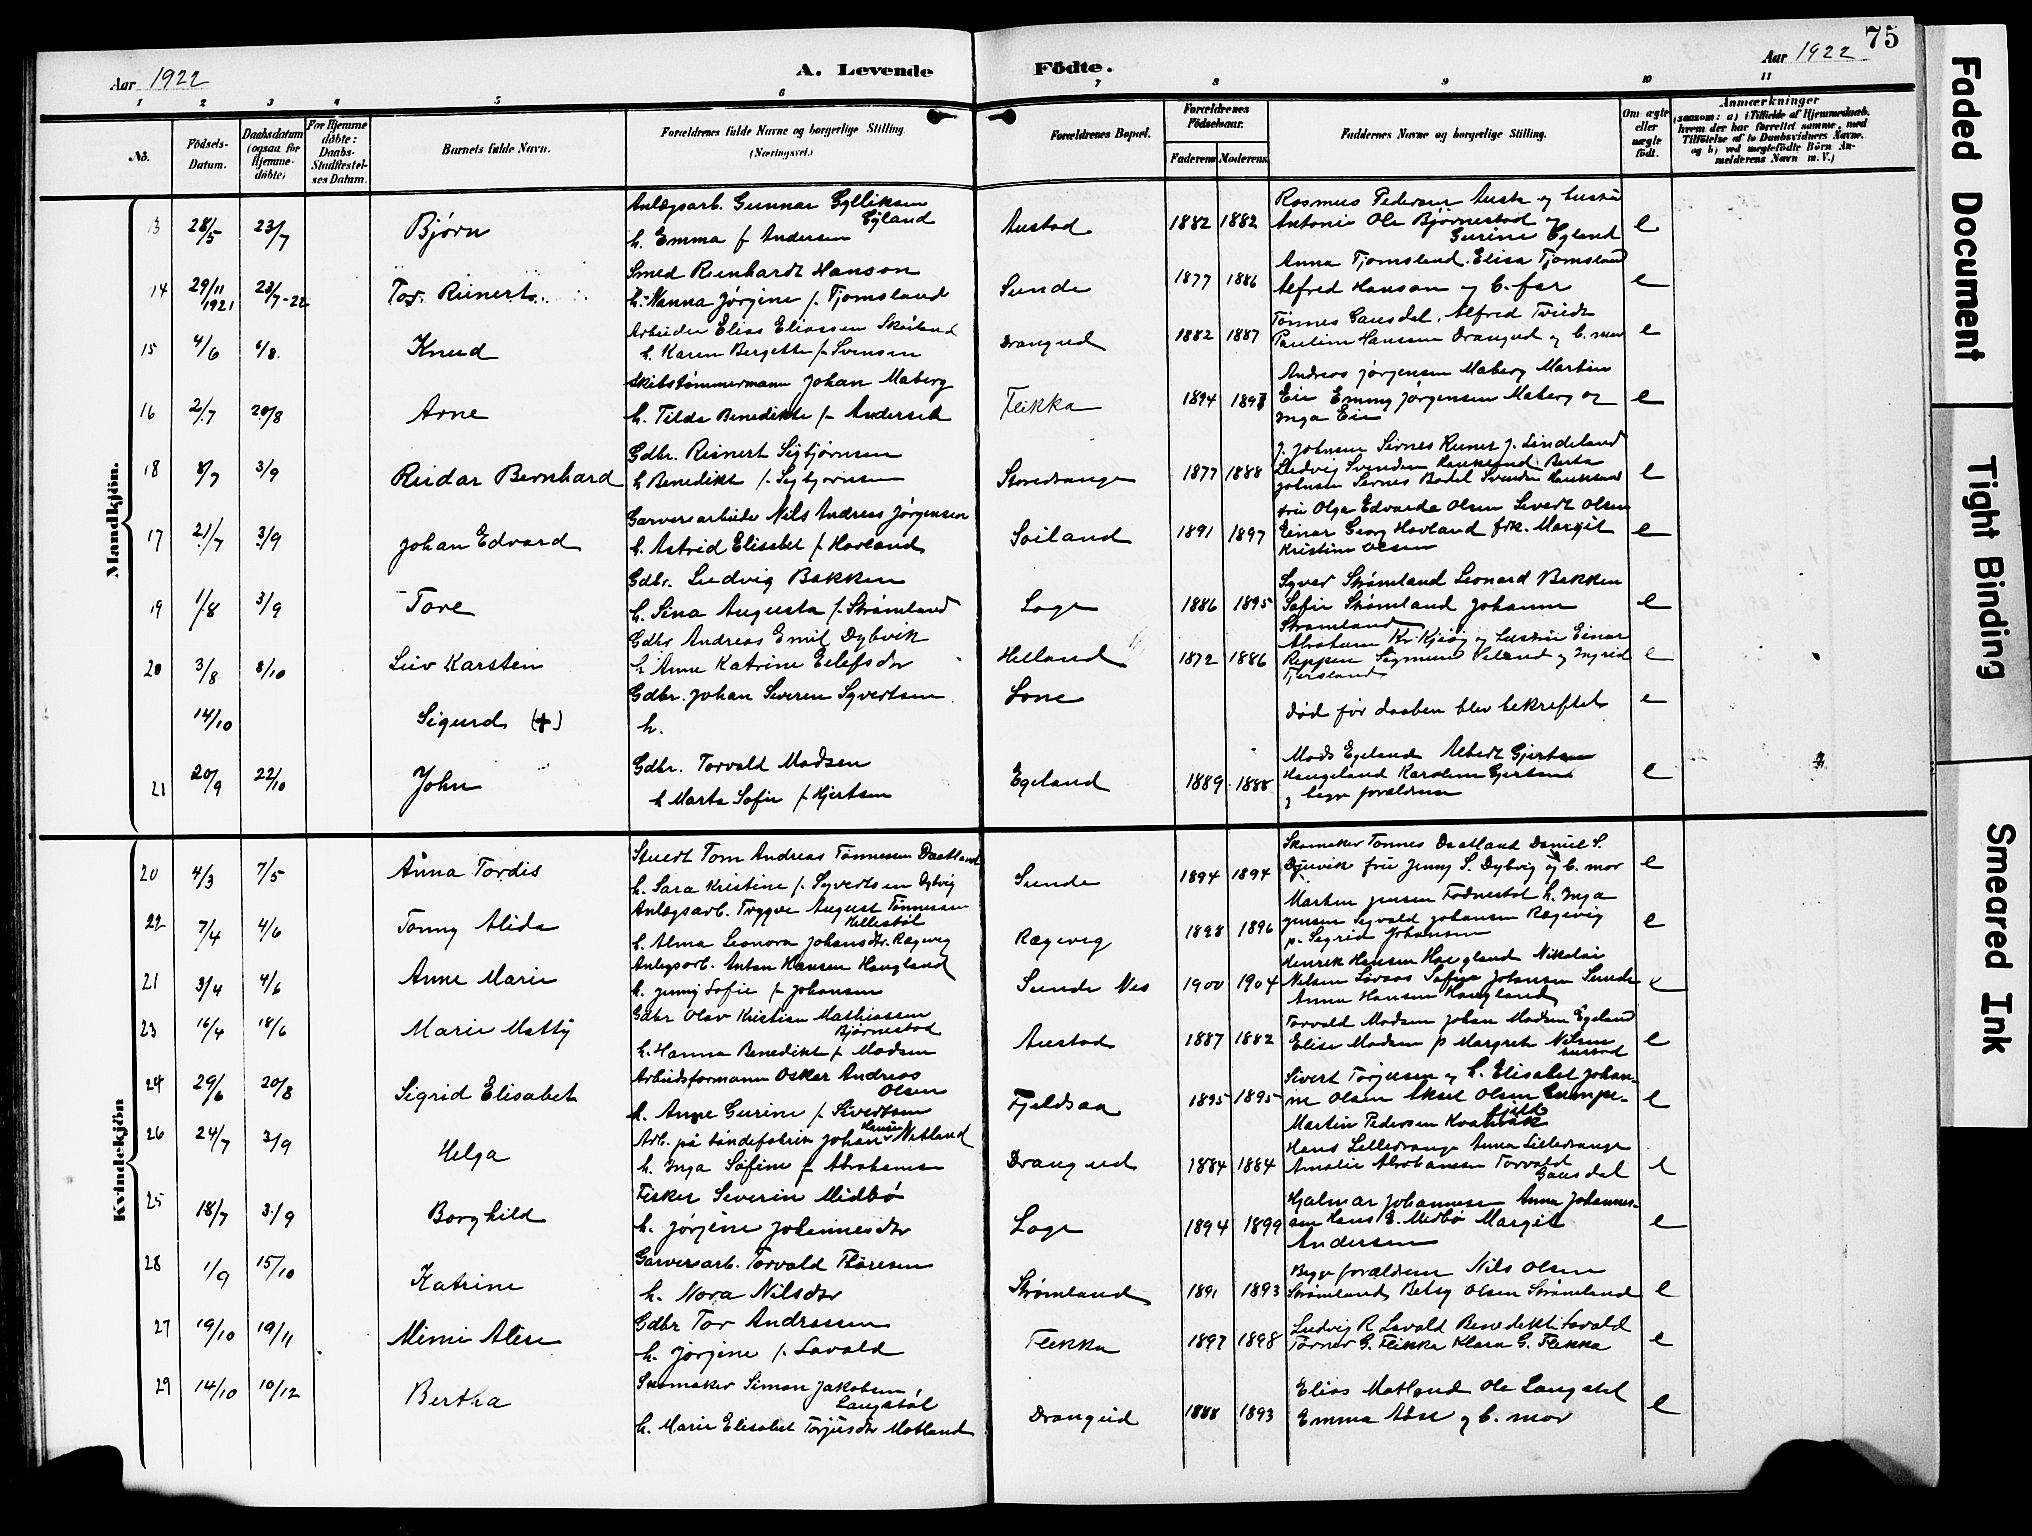 75
Aar 1922
A. Levende Födte.
Aar 1922
1 2 3 4 5 6 7 8 9 10 11
No.
Födsels-Datum.
Daabsdatum (ogsaa för Hjemmedöbte)
For Hjemmedöbte: Daabs-Stadfæstelses Datum.
Barnets fulde Navn.
Forældrenes fulde Navne og borgerlige Stilling. (Næringsvei.)
Forældrenes Bopæl.
Forældrenes Födselsaar.
Faderens Moderens
Faddernes Navne og borgerlige Stilling.
Om ægte eller uægte födt.
Anmærkninger
Mandkjön.
13 28/5 23/7 Bjørn
Anlægsarb. Gunnar Gylliksen Egland
h. Emma f Andersen
Austad 1882 1882
Rasmus Pedersen Austa og hustru
Antonie Ole Bjørnestad og
Gurine Egland e
14 29/11 1921 23/7-22 Tor. Reinert
Smed Reinhardt Hanson
h. Nanna Jørgine f. Tjomsland
Sunde 1877 1886
Anna Tjomsland. Elisa Tjomsland
Alfred Hanson og b. far e
15 4/6 6/8 Knud
Arbeider Elias Eliassen Skoiland
h. Karen Bergette f. Svensen
Drangeid 1882 1887
Tønnes Gausdal, Alfred Tveide
Pauline Hanssen Drangeid og b. mor e
16 2/7 20/8 Arne
Skibstømmermann Johan Maberg
h. Tilda Benedikte f. Andersen
Flikka 1894
Andreas Jørgensen Maberg Martin
Eie Emmy Jørgensen Maberg og
Inga Eie e
18 8/7 3/9 Reidar Bernhard
Gdbr. Reinert Sigbjørnsen
h Benedikte f. Sigbjørnsen
Storedrange 1877 1888
J. Johnsen Sirnes Reiner J. Lindeland
Ludvig Svendsen Haukland Berta
Johnsen Sirnes Bodil Svendsen Haukland e
17 21/7 3/9 Johan Edvard
Garveriarbeider Nils Andreas Jørgensen
h. Astrid Elisabet f. Hovland
Soiland 1891 1897
fru Olga Edvarda Olsen Sevedt Olsen
Einar Georg Hovland frk. Margit
Kristine Olsen e
19 1/8 3/9 Tore
Gdbr. Ludvig Bakken
h. Sina Augusta f. Strømland
Loge 1886 1895
Syver Strømland Leonard Bakken
Sofie Strømland Johanne
Strømland e
20 3/8 8/10 Leiv Karsten
Gdbr Andreas Emil Dybvik
h Anne Katrine Eilefsdtr
Helland 1872 1886
Abraham Kr. Kjeøg og hustru Einar
Reppen Sigmund Veland og Ingrid
Tjersland e
14/10 Sigurd (+)
Gdbr. Johan Severin Syvertsen
h.
Lone
død før daaben blev bekreftet e
21 20/9 22/10 John
Gdbr. Torvald Madsen
h Marta Sofie f. Hjertsen
Egeland 1889 1888
Mads Egeland Albert Gjertsen
Haugeland Karoline Gjertsen
og begge forældrene e
Kvindekjön
20 4/3 7/5 Anna Tordis
Stuert Tom Andreas Tønnessen Daatland
h. Sara Kristine f. Syvertsen Dybvig
Sunde 1894 1894
Skomaker Tønnes Daatland Daniel S.
Djuvik fru Jenny S. Dybvig og b. mor e
22 7/4 4/6 Tonny Alida
Anlægsarb. Trygve August Tønnessen Hellestøl
h. Alma Leonora Johansdtr. Rægevig
Rægevig 1898 1896
Martin Jensen Fodnestøl h. Inga
Jensen Sigvald Johansen Rægevig
p. Sigrid Johansen e
21 3/4 4/6 Anne Marie
Anlegsarb. Anton Hansen Haugland
h. Jenny Sofie f. Johansen
Sunde Nes 1900 1904
Henrik Hansen Haugland Nikolai
Nilsen Lovaas Sofie Johansen Sunde
Anna Hansen Haugland e
23 16/4 18/6 Marie Matty
Gdbr Olav Kristian Mathiassen Bjørnestad
h. Hanna Benedikte f. Madsen
Austad 1887 1882
Torvald Madsen Johan Madsen Egeland
Elise Madsen p Margrete Nilsen
Austad e
24 29/6 20/8 Sigrid Elisabet
Arbeidsformann Osker Andreas Olsen
h. Anne Gurine f. Sivertsen
Fjeldsaa 1895 1895
Sivert Torjusen og h. Elisabet Johan-
ne Olsen Aksel Olsen Gumpe-
fjeld
Martin Pedersen Kvanvik e
26 24/7 3/9 Helga
Arb. på tøndefabrik Johan Hansen Netland
h. Inga Sofine f. Abrahamsen
Drangeid 1884 1884
Hans Lilledrange Anna Lilledrange
Amalie Abrahamsen Torvald
Gausdal e
25 18/7 3/9 Borghild
Fisker Severin Midbø
h. Jørgine Johannesdtr
Loge 1894 1899
Hjalmar Johannesen Anna Johannes-
sen Hans E. Midbø Margit
Andersen e
28 1/9 15/10 Katrine
Garveriarb. Torvald Thoresen
h. Nora Nilsdtr
Strømland 1891 1893
Begge forældrene Nils Olsen
Strømland Betsy Olsen Strømland e
27 19/10 19/11 Mimi Alise
Gdbr Tor Andreassen
h. Jørgine f. Lavold
Flikka 1897 1898
Ludvig R Lavold Benedikte Lavold
Torner G. Flikka Klara G. Flikka e
29 14/10 10/12 Bertha
Skomaker Simon Jakobsen Langstøl
h. Marie Elisabet Torjusdtr Motland
Drangeid 1888 1893
Elias Motland Ole Langstøl
Emma Aase og b. mor e
Faded Document
Tight Binding
Smeared Ink